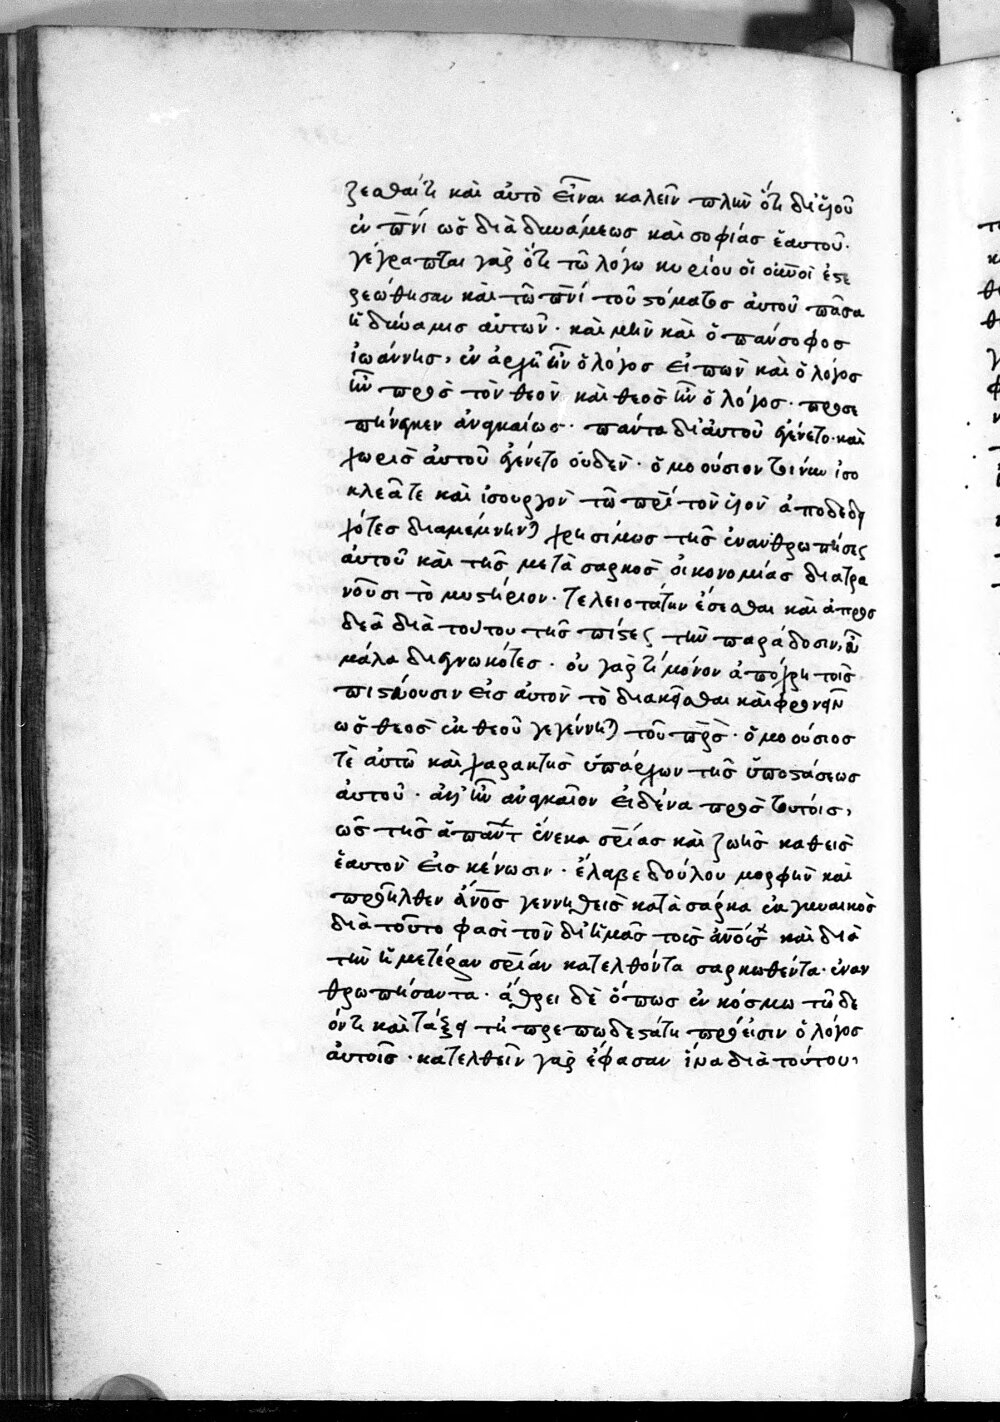 ζεσθαί τι καὶ αὐτὸ εἶναι καλεῖν πλὴν ὅτι δι' υἱοῦ
ἐν πνί ὡς διὰ δυνάμεως καὶ σοφίας ἑαυτοῦ·
γέγραπται γὰρ ὅτι τῶ λόγω κυρίου οἱ οὐνοὶ ἐστε
ρεώθησαν καὶ τῶ πνί τοῦ στόματος αὐτοῦ πᾶσα
ἡ δύναμις αὐτῶν· καὶ μὴν καὶ ὁ πάνσοφος
ἰωάννης, ἐν ἀρχῆ ἦν ὁ λόγος εἰπὼν καὶ ὁ λόγος
ἦν πρὸς τὸν θεὸν καὶ θεὸς ἦν ὁ λόγος· προσε
πήνεγκεν ἀναγκαίως· πάντα δι' αὐτοῦ ἐγένετο· καὶ
χωρὶς αὐτοῦ ἐγένετο οὐδέν· ὁμοούσιον τοίνυν ἰσο
κλεᾶ τε καὶ ἰσουργὸν τῶ πρί τὸν υἱὸν ἀποδεδει
χότες διαμέμνηνται χρησίμως τῆς ἐνανθρωπήσεως
αὐτοῦ καὶ τῆς μετὰ σαρκὸς οἰκονομίας διατρα
νοῦσι τὸ μυστήριον· τελειοτάτην ἔσεσθαι καὶ ἀπροσ
δεᾶ διὰ τούτου τῆς πίστεως τὴν παράδοσιν, εὖ
μάλα διεγνωκότες· οὐ γάρ τι μόνον ἀπόχρη τοῖς
πιστεύουσιν εἰς αὐτὸν τὸ διακεῖσθαι καὶ φρονεῖν
ὡς θεὸς ἐκ θεοῦ γεγέννηται τοῦ πρς· ὁμοούσιος
τὲ αὐτῶ καὶ χαρακτὴρ ὑπάρχων τῆς ὑποστάσεως
αὐτοῦ· ἀλλ' ἦν ἀναγκαῖον εἰδέναι πρὸς τούτοις,
ὡς τῆς ἁπάντων ἕνεκα σρίας καὶ ζωῆς καθεὶς
ἑαυτὸν εἰς κένωσιν· ἔλαβε δούλου μορφὴν καὶ
προῆλθεν ἄνος γεννηθεὶς κατὰ σάρκα ἐκ γυναικὸς
διὰ τοῦτο φασὶ τὸν δι' ἡμᾶς τοὺς ἀνούς καὶ διὰ
τὴν ἡμετέραν σρίαν κατελθόντα σαρκωθέντα· ἐναν
θρωπήσαντα· ἄθρει δὲ ὅπως ἐν κόσμω τῶ δέ
όντι καὶ τάξει τῆ πρεπωδεστάτη πρόεισιν ὁ λόγος
αὐτοῖς· κατελθεῖν γὰρ ἔφασαν ἵνα διὰ τούτου,